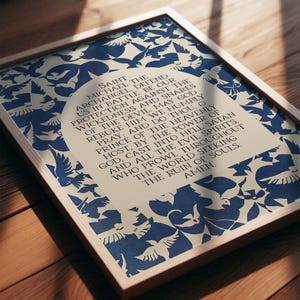 SAINT MICHAEL THE
ARCHANGEL DEFEND
US IN BATTLE BE OUR
PROTECTION AGAINST THE
WICKEDNESS AND SNARES
OF THE DEVIL MAY GOD
REBUKE HIM WE HUMBLY
PRAY AND DO THOU O
PRINCE OF THE HEAVENLY
HOST BY THE POWER OF
GOD CAST INTO HELL SATAN
WHO PROWL THROUGHOUT
THE WORLD SEEKING
THE RUIN OF SOULS
AMEN